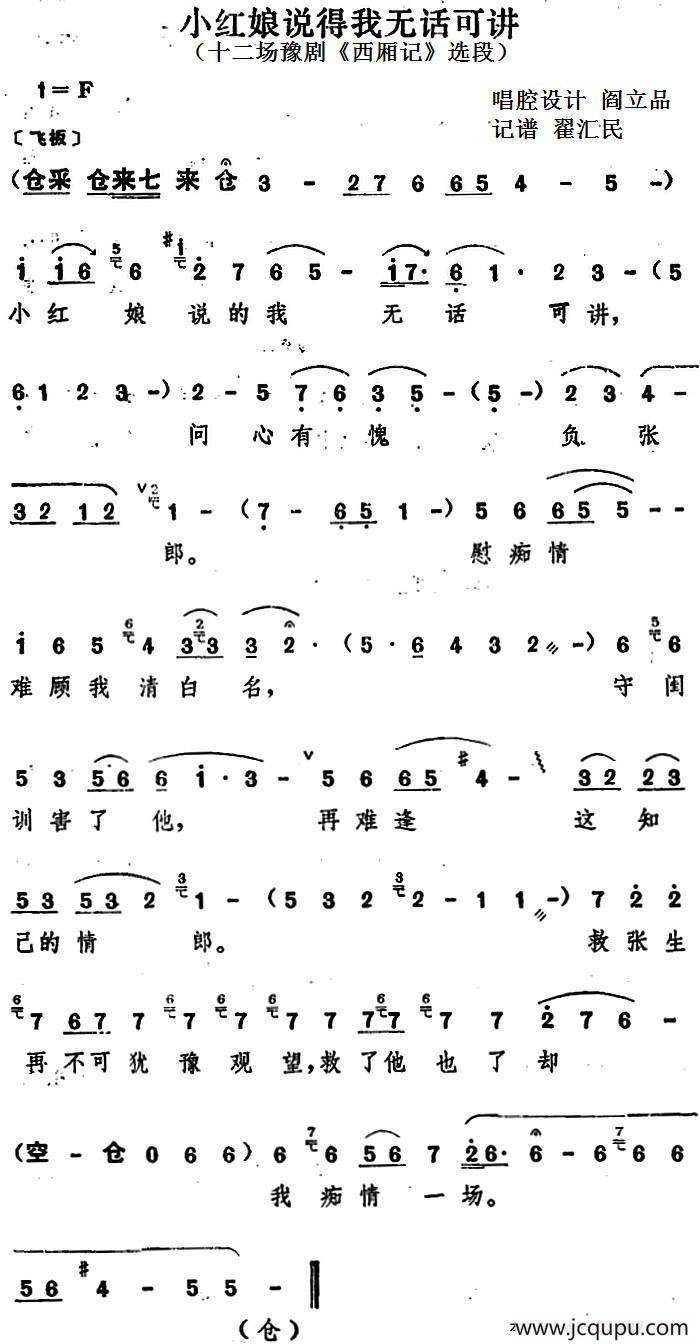 小红娘说得我无话可讲
（十二场豫剧《西厢记》选段）
1=F
唱腔设计 阎立品
〔飞板〕
记谱 翟汇民
（仓采 仓来七 来 仓 3 - 27 6 65 4 - 5 -）
i i6 6 2 7 6 5 - i7· 6 1· 2 3 -（5
小红 娘 说的我 无 话 可讲，
6 1 2 3 -） 2 - 5 7 6 3 5 -（5 -） 2 3 4 -
问 心有 愧 负 张
32 12 1 -（7 - 65 1 -） 5 6 65 5 - -
郎。 慰痴情
i 6 5 4 33 3 2·（5· 6 4 3 2 -） 6 6
难顾我清白名， 守闺
5 3 56 6 i· 3 - 5 6 65 #4 - 32 23
训害了他， 再难逢 这知
53 53 2 1 -（5 3 2 2 - 1 1 -） 7 2 2
己的情 郎。 救张生
7 67 7 7 7 7 77 7 7 2 7 6 -
再不可犹豫观望，救了他也了却
（空 - 仓 0 6 6） 6 6 56 7 26· 6 - 6 6
我痴情一场。
56 #4 - 5 5 -
（仓）
www.jcqupu.com